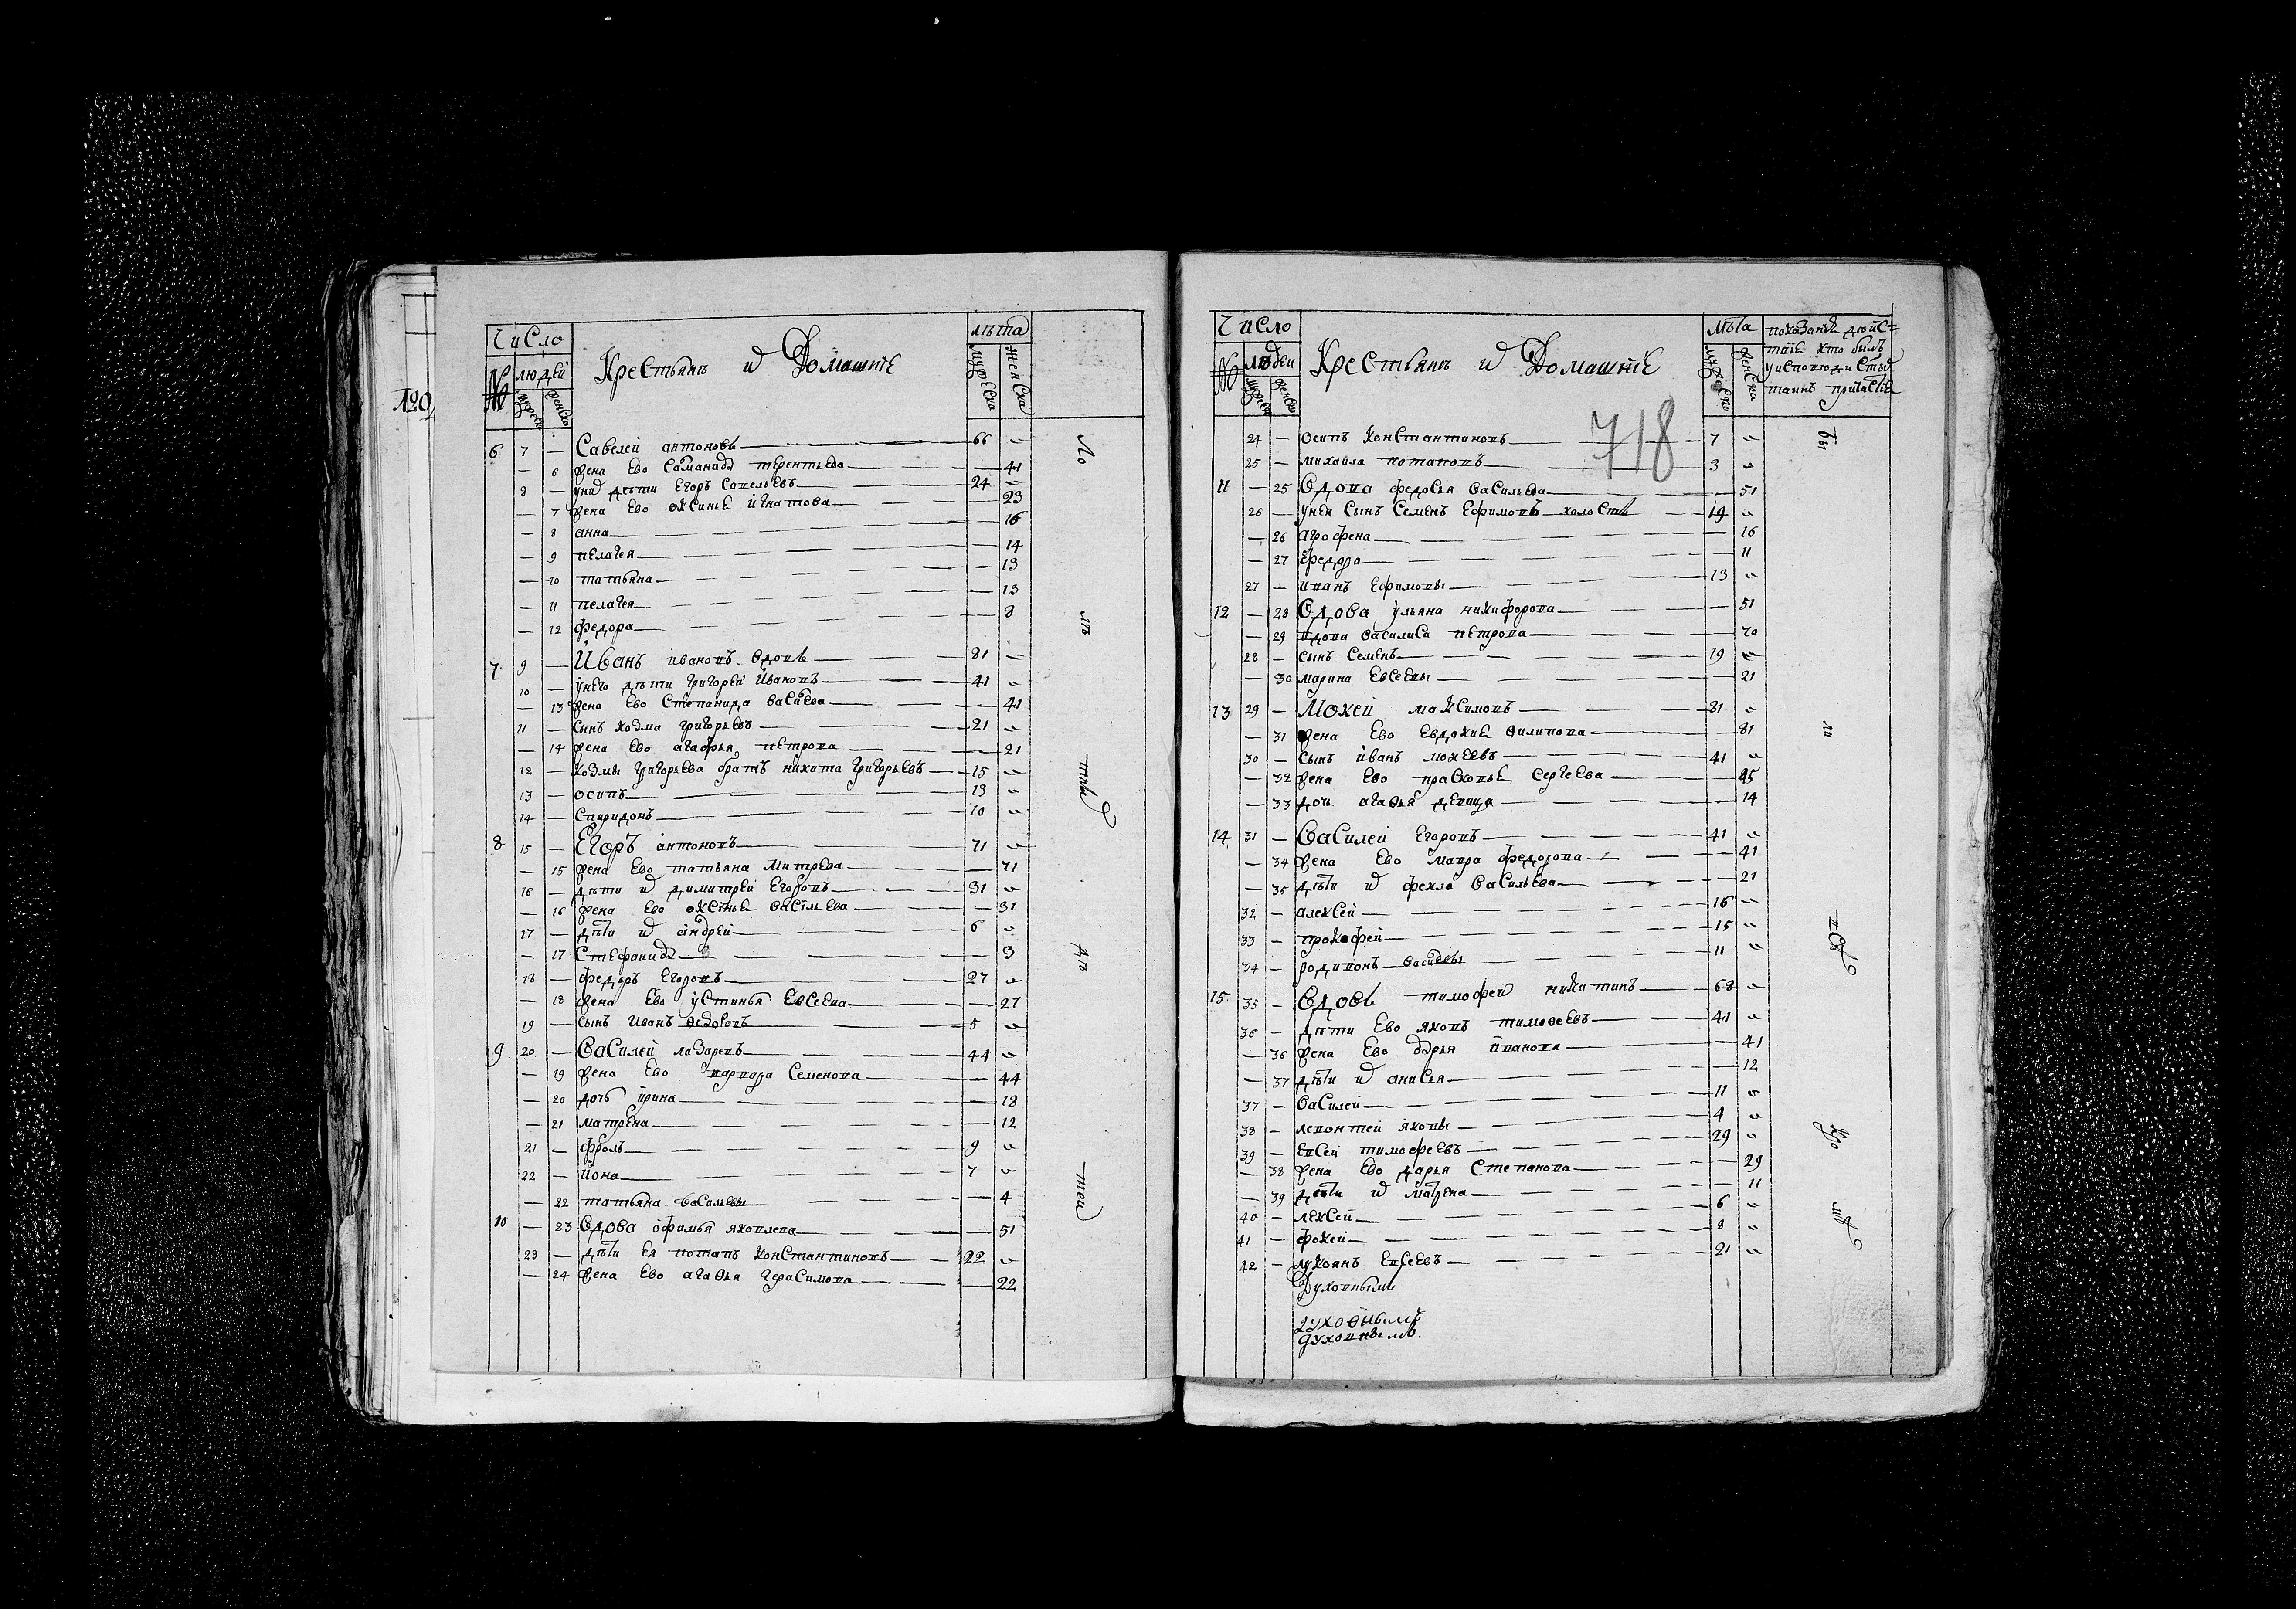 120
Число
лѣта
№
людей
Крестьянъ и Домашнiе
мужеска
женска
6 7 — Савелей антоновъ — 66 "
— 6 жена Ево Саманида терентьева — 41
8 — унид дѣти Егоръ Савельевъ — 24 "
— 7 жена Ево оксинья игнатова — 23
— 8 анна — 16
— 9 пелагея — 14
— 10 татьяна — 13
— 11 пелагея — 13
— 12 федора — 8
7 9 — Иванъ ивановъ вдовъ — 81 "
10 — унего дѣти григорей Ивановъ — 41 "
— 13 жена Ево Степанида васиева — 41
11 — сынъ козма григорьевъ — 21 "
— 14 жена Ево агафья петрова — 21
12 — козмы григорьева братъ никита григорьевъ — 15 "
13 — осипъ — 13 "
14 — спиридонъ — 10 "
8 15 — Егоръ антоновъ — 71 "
— 15 жена Ево татьяна Митрева — 71
16 — дѣти и димитрей Егоровъ — 31 "
— 16 жена Ево оксiнья васiльева — 31
17 — дѣти и андрей — 6 "
— 17 Стефанида — 3
18 — федоръ Егоровъ — 27 "
— 18 жена Ево устинья Евсеева — 27
19 — сынъ Иванъ федоровъ — 5 "
9 20 — Василей лазаревъ — 44 "
— 19 жена Ево варвара Семенова — 44
— 20 дочь ирина — 18
— 21 матрена — 12
21 — фролъ — 9 "
22 — иона — 7 "
— 22 татьяна васильевы — 4
10 — 23 Вдова офимья яковлева — 51
23 — дѣти Ея потапъ Константиновъ — 22 "
— 24 жена Ево агафья герасимова — 22
Число
лѣта
№
людей
Крестьянъ и Домашнiе
718
24 — осипъ Константиновъ — 7 "
25 — михайла потаповъ — 3 "
11 — 25 Вдова федосья васильева — 51
26 — унея сынъ Семенъ Ефимовъ холостъ — 19 "
— 26 агрофена — 16
— 27 федора — 11
27 — иванъ Ефимовы — 13 "
12 — 28 Вдова ульяна никифорова — 51
— 29 вдова василиса петрова — 70
28 — сынъ Семенъ — 19 "
— 30 марина Евсеевы — 21
13 29 — Мокей максимовъ — 81 "
— 31 жена Ево Евдокия филипова — 81
30 — сынъ иванъ мокеевъ — 41 "
— 32 жена Ево прасковья сергеева — 45
— 33 дочь агафья девица — 14
14 31 — Василей Егоровъ — 41 "
— 34 жена Ево мавра федорова — 41
— 35 дѣти и фекла васильева — 21
32 — алексей — 16 "
33 — прокофей — 15 "
34 — родивонъ васиевы — 11 "
15 35 — Вдовъ тимофей никитинъ — 68 "
36 — дѣти Ево яковъ тимофеевъ — 41 "
— 36 жена Ево дарья иванова — 41
— 37 дѣти и анисья — 12
37 — василей — 11 "
38 — левонтей яковы — 4 "
39 — Евсей тимофеевъ — 29 "
— 38 жена Ево дарья Степанова — 29
— 39 дѣти и матрена — 11
40 — лексей — 6 "
41 — фокей — 8 "
42 — лукоянъ Евсеевъ — 21 "
духовными
духовными
духовными